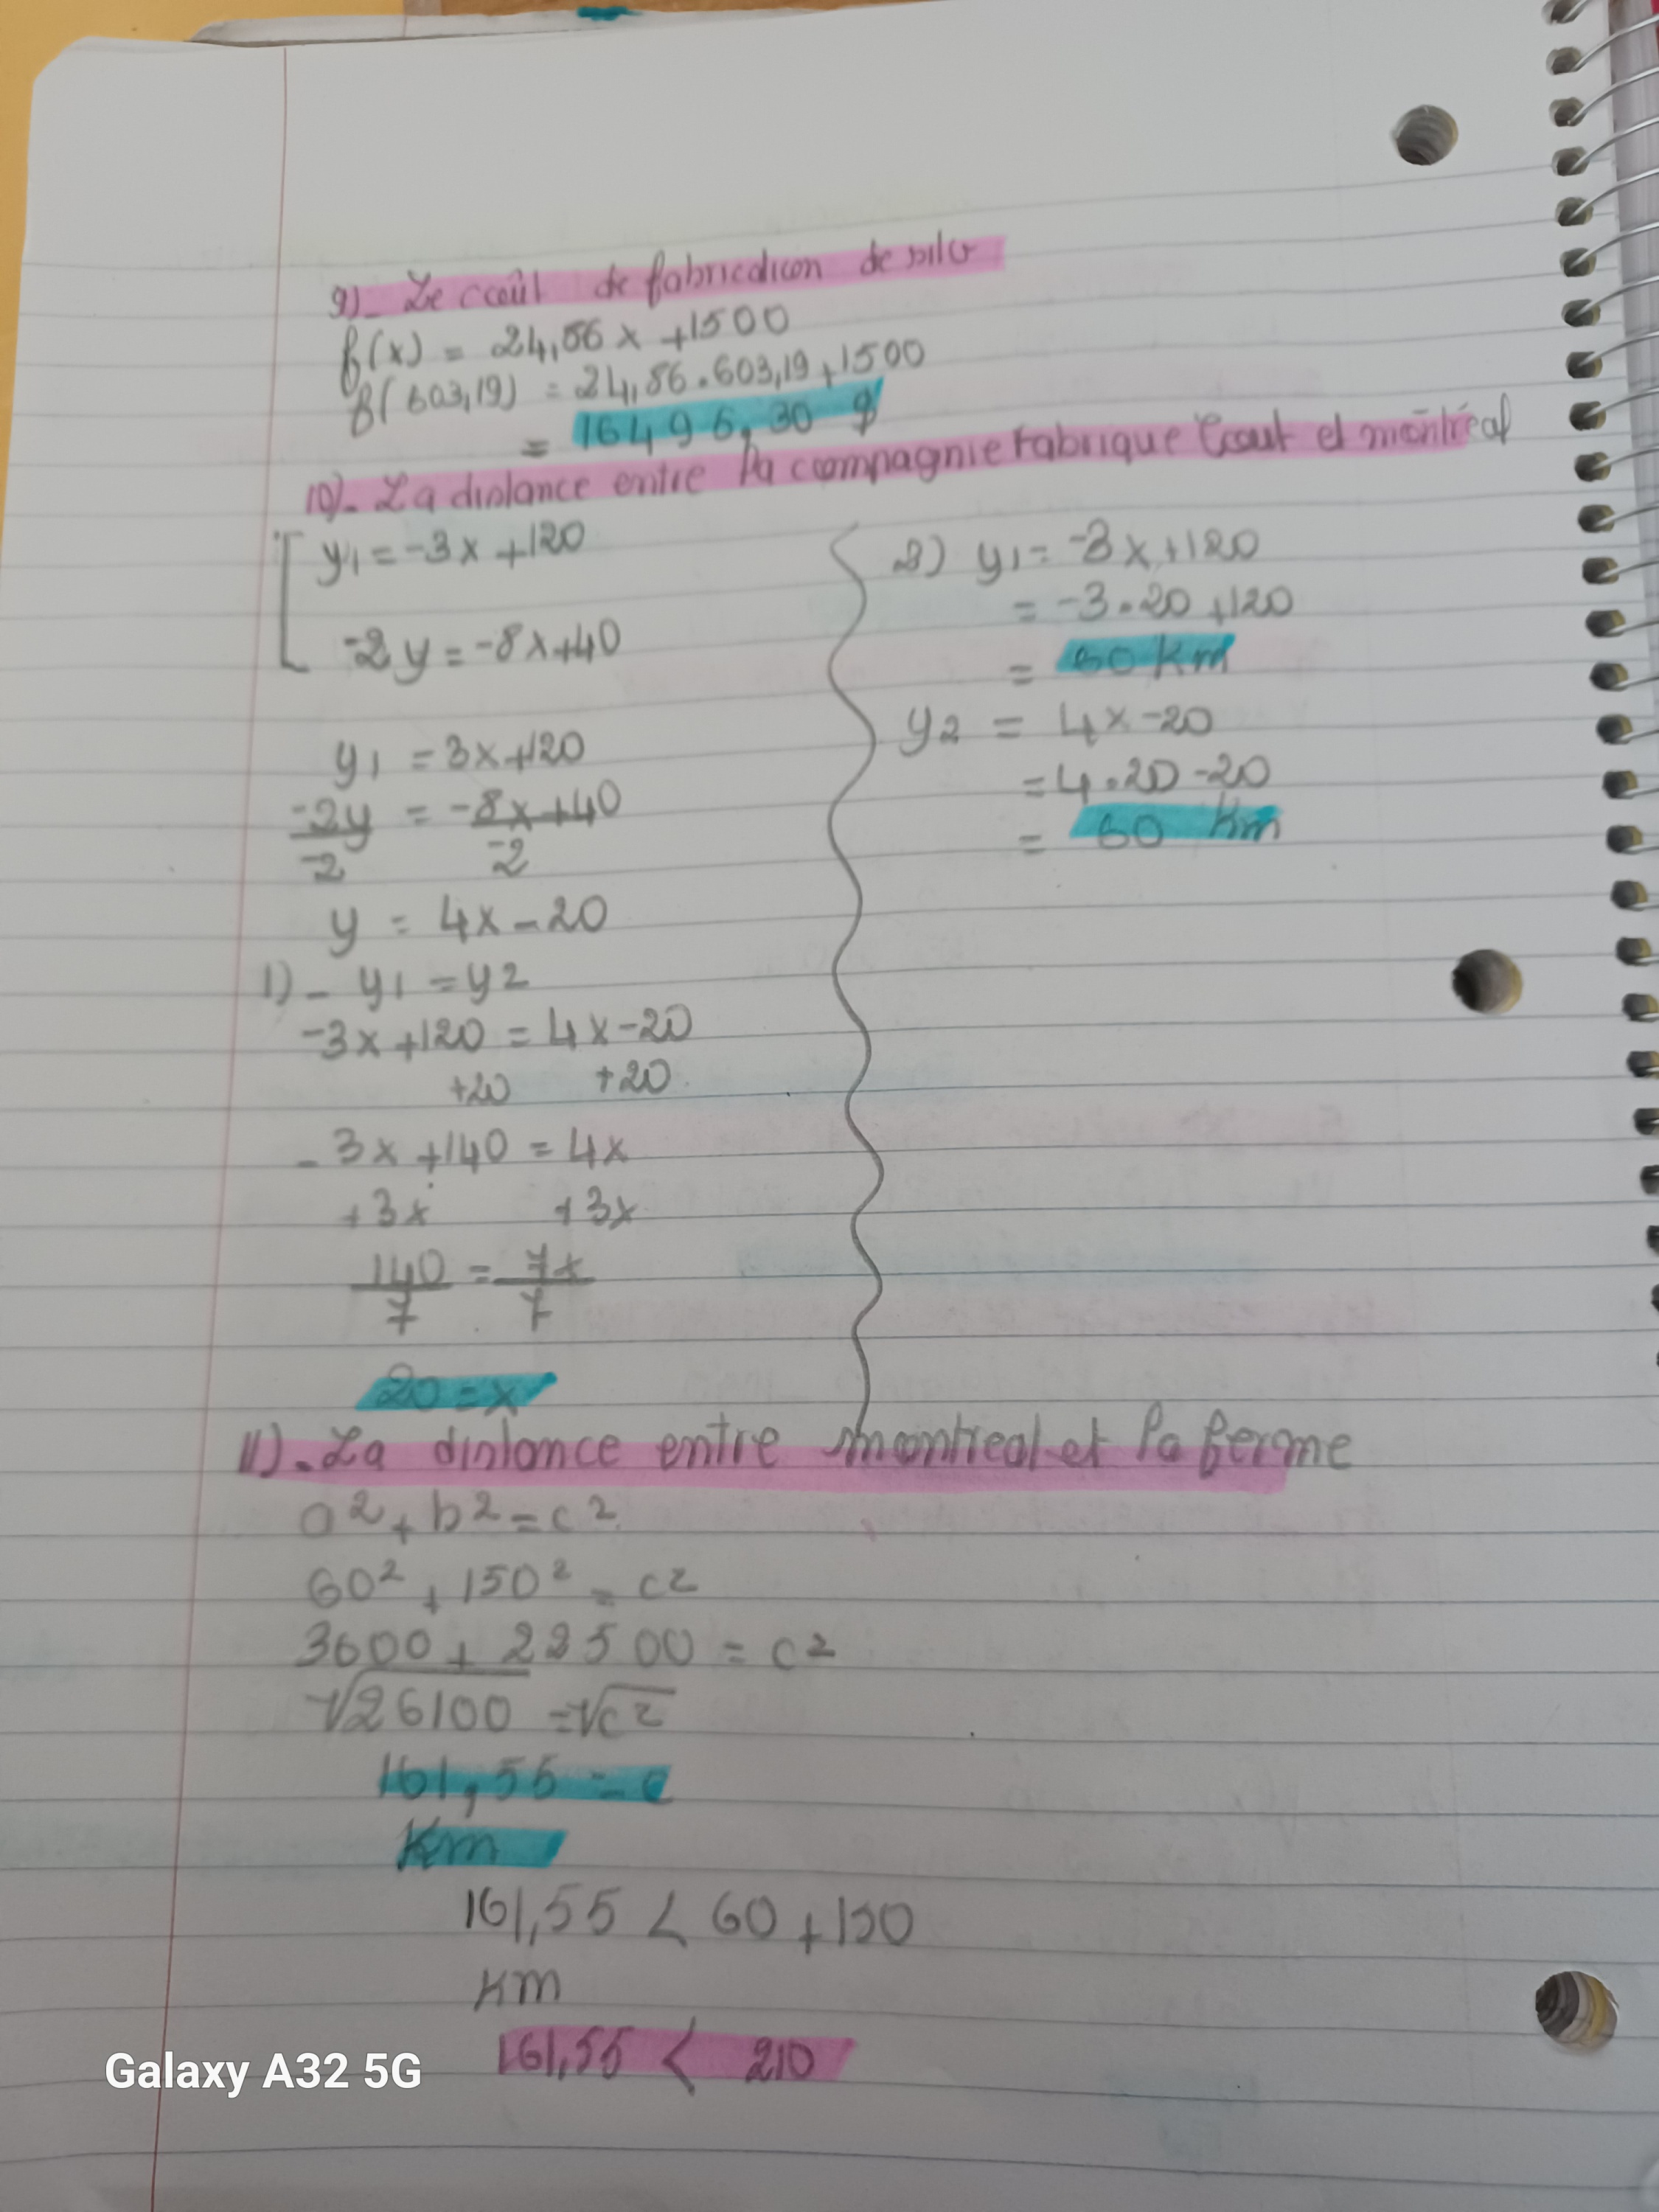 9)- Le ccoût de fabricaticon de silo
f(x) = 24,86x +1500
f(603,19) = 24,86.603,19+1500
= 16496,30 $
10)- La distance entre la compagnie Fabrique tout et montréal
y1 = -3x +120
-2y = -8x+40
y1 = 3x+120
-2y = -8x+40
-2 -2
y = 4x-20
1)- y1 = y2
-3x +120 = 4x-20
+20 +20
- 3x +140 = 4x
+3x +3x
140 = 7x
7 7
20 = x
2) y1 = -3x+120
= -3.20 +120
= 60 Km
y2 = 4x-20
= 4.20 -20
= 60 Km
11)- La distance entre montreal et la ferme
a² + b² = c²
60² + 150² = c²
3600 + 22500 = c²
√26100 = √c²
161,55 = c
Km
161,55 < 60 +150
Km
161,55 < 210
Galaxy A32 5G